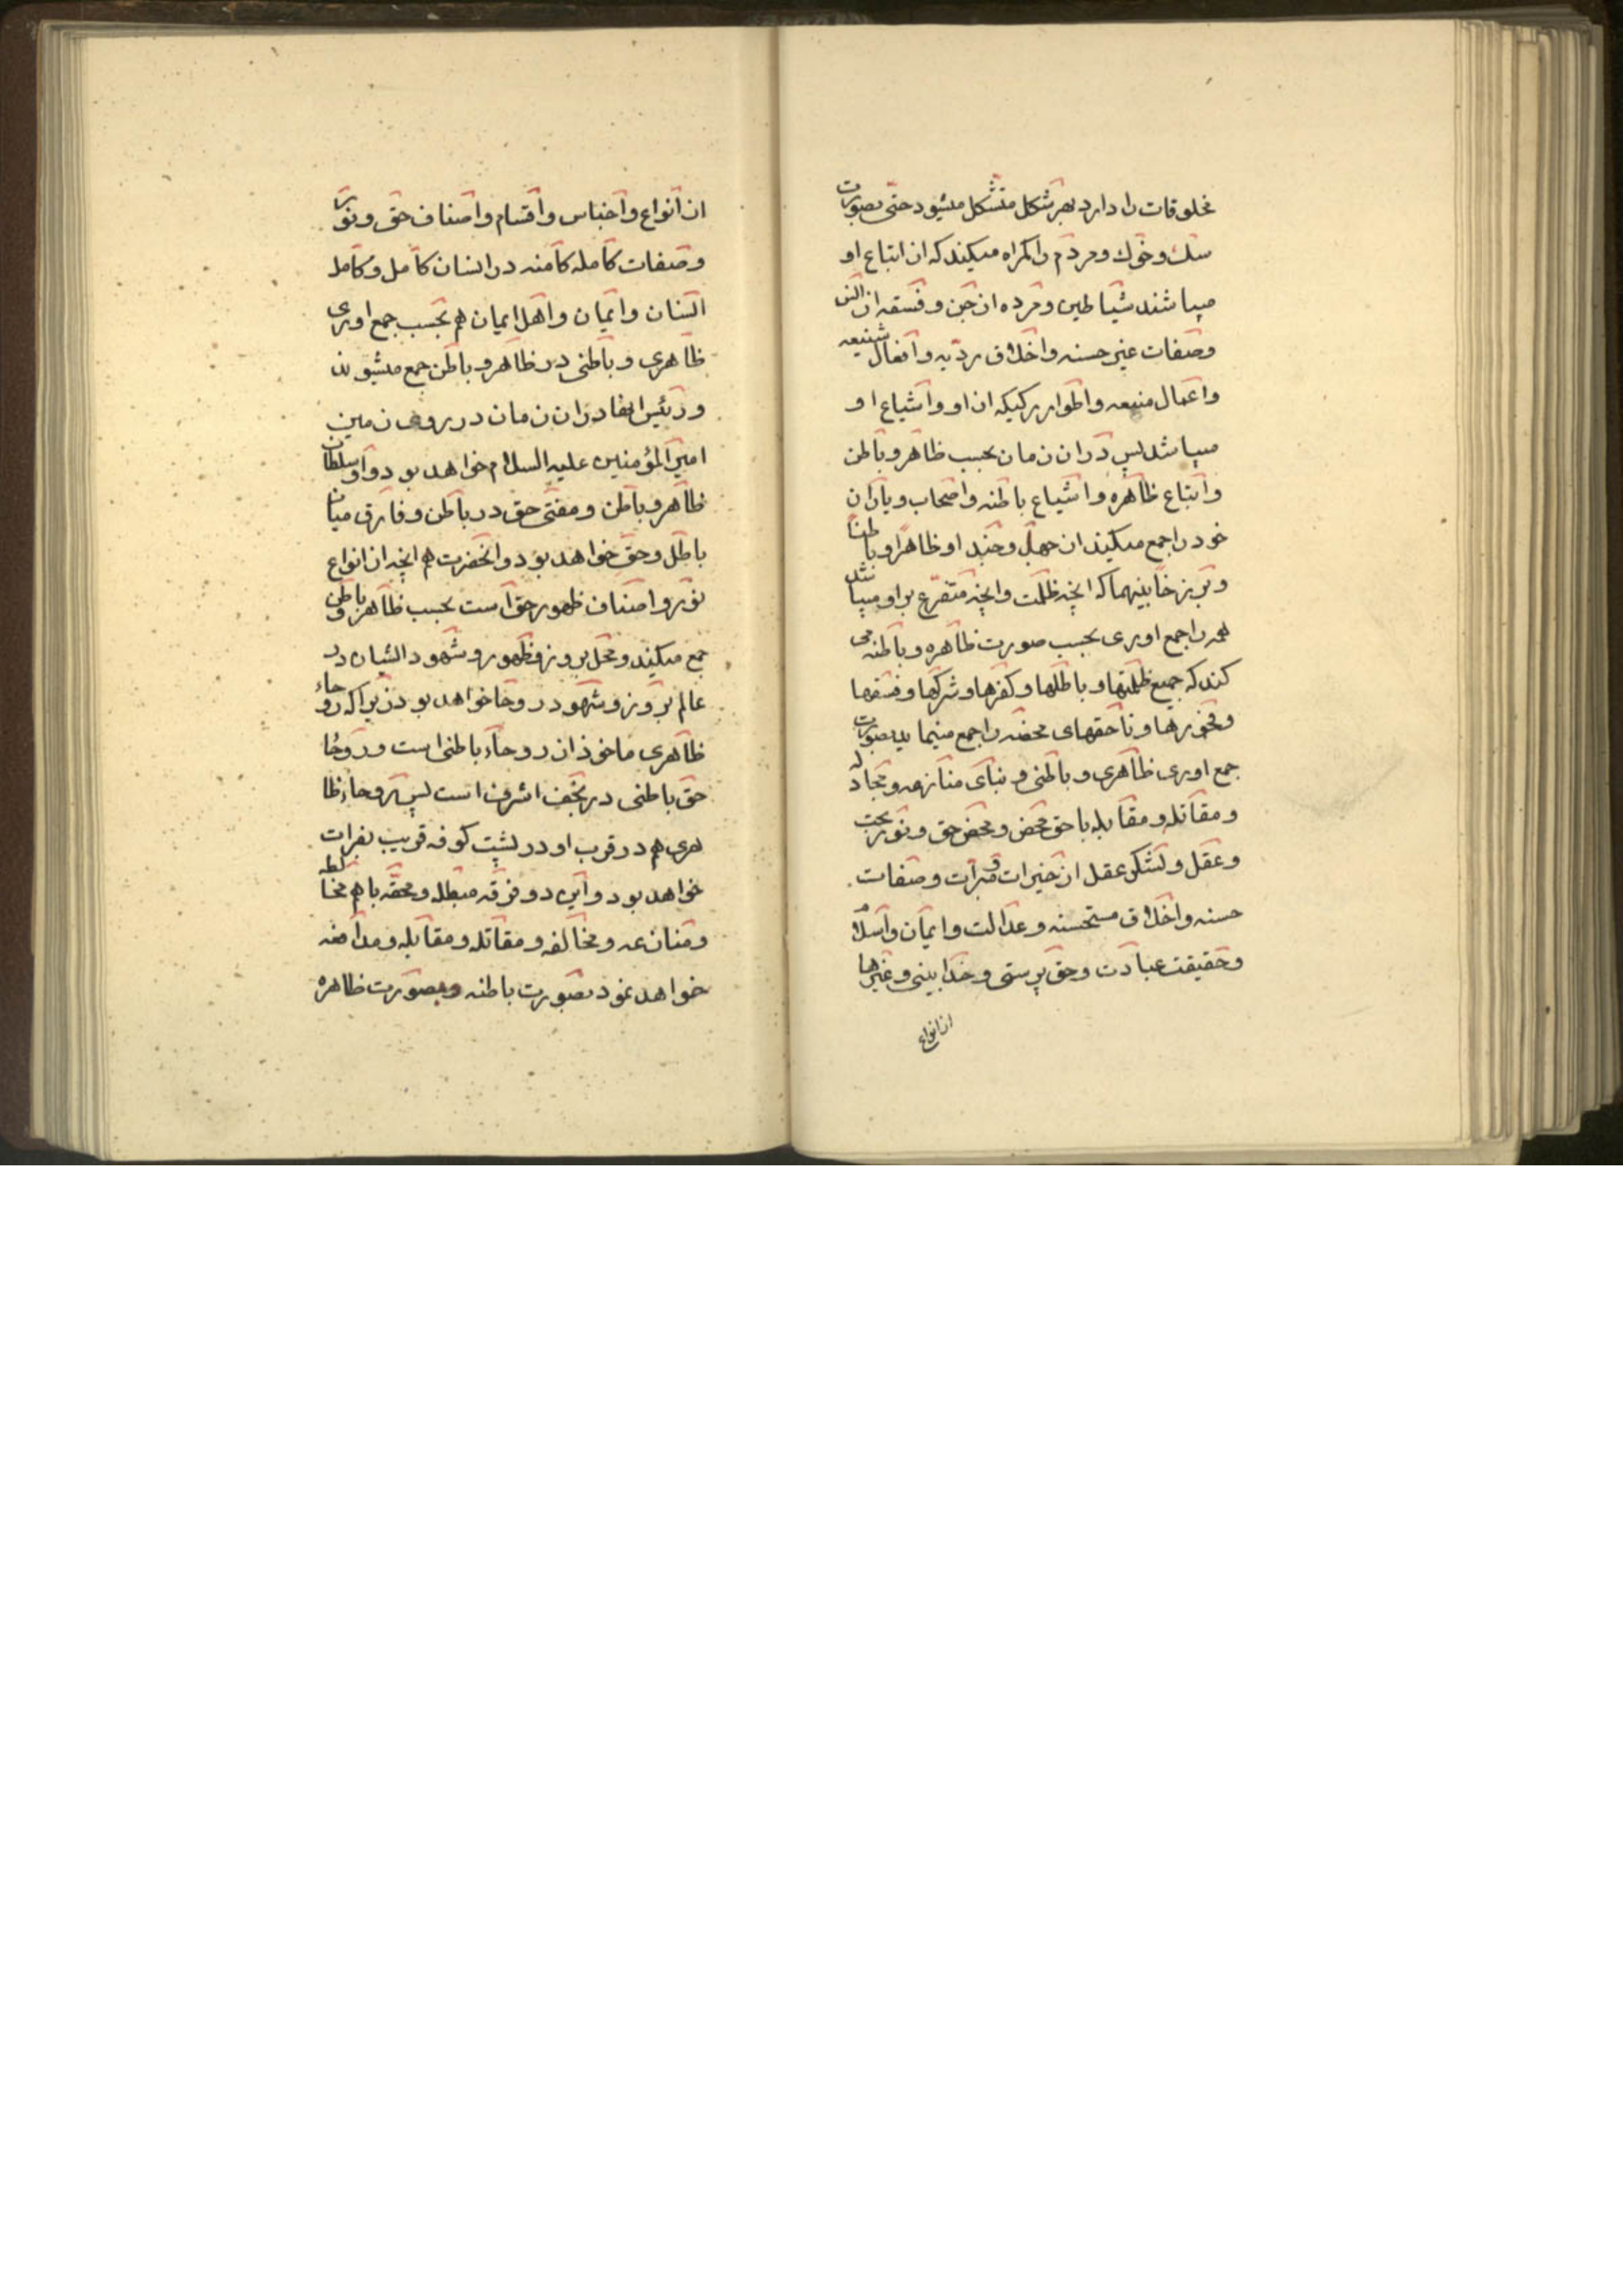 مخلوقات را دارد بهر شکل متشکل میشود حتی بصورت
سک و خوك و مردم را کمراه میکند که از اتباع او
میباشند شیاطین و مرده از جن و فسقه از انس
وصفات غیر حسنه واخلاق ردیه وافعال شنیعه
واعمال منیعه واطوار رکیکه از او واشیاع او
میباشد پس در ان زمان بحسب ظاهر وباطن
واتباع ظاهره واشیاع باطنه واصحاب ویاران
خود را جمع میکند از جهل وجند او ظاهرا وباطنا
وانچه ظلمت وانچه متفرع بر او میباشد
همه را جمع اوری بحسب صورت ظاهره وباطنه می
کند که جمیع ظلمتها وباطلها وکفرها وشرکها وفسقها
وفجورها وناحقهای محضه را جمع مینماید بصورت
جمع اوری ظاهری وباطنی وبنای منازعه ومجادله
ومقاتله ومقابله با حق محض ومحض حق ونور بحت
وعقل ولشکر عقل از خیرات ومبرات وصفات
حسنه واخلاق مستحسنه وعدالت وایمان واسلام
وحقیقت عبادت وحق پرستی وخدا بینی وغیرها
از انواع
از انواع واجناس واقسام واصناف حق ونور
وصفات کامله کامنه در انسان کامل وکامل
انسان وایمان واهل ایمان هم بحسب جمع اوری
ظاهری وباطنی در ظاهر وباطن جمع میشوند
ورئیس انها در ان زمان در روی زمین
امیر المؤمنین علیه السلام خواهد بود واو سلطان
ظاهر وباطن ومفتی حق در باطن وفارق میان
باطل وحق خواهد بود وانحضرت هم انچه از انواع
نور واصناف ظهور حق است بحسب ظاهر وباطن
جمع میکند ومحل بروز وظهور وشهود ایشان در
عالم بروز وشهود در روحا خواهد بود زیرا که روحاء
ظاهری ماخوذ از روحاء باطنی است وروحا
حق باطنی در نجف اشرف است پس روحاء ظا
هری هم در قرب او در پشت کوفه قریب بفرات
خواهد بود واین دو فرقه مبطله ومحقه باهم مخالطه
ومنازعه ومخالفه ومقاتله ومقابله ومدافعه
خواهد نمود بصورت باطنه وبصورت ظاهره